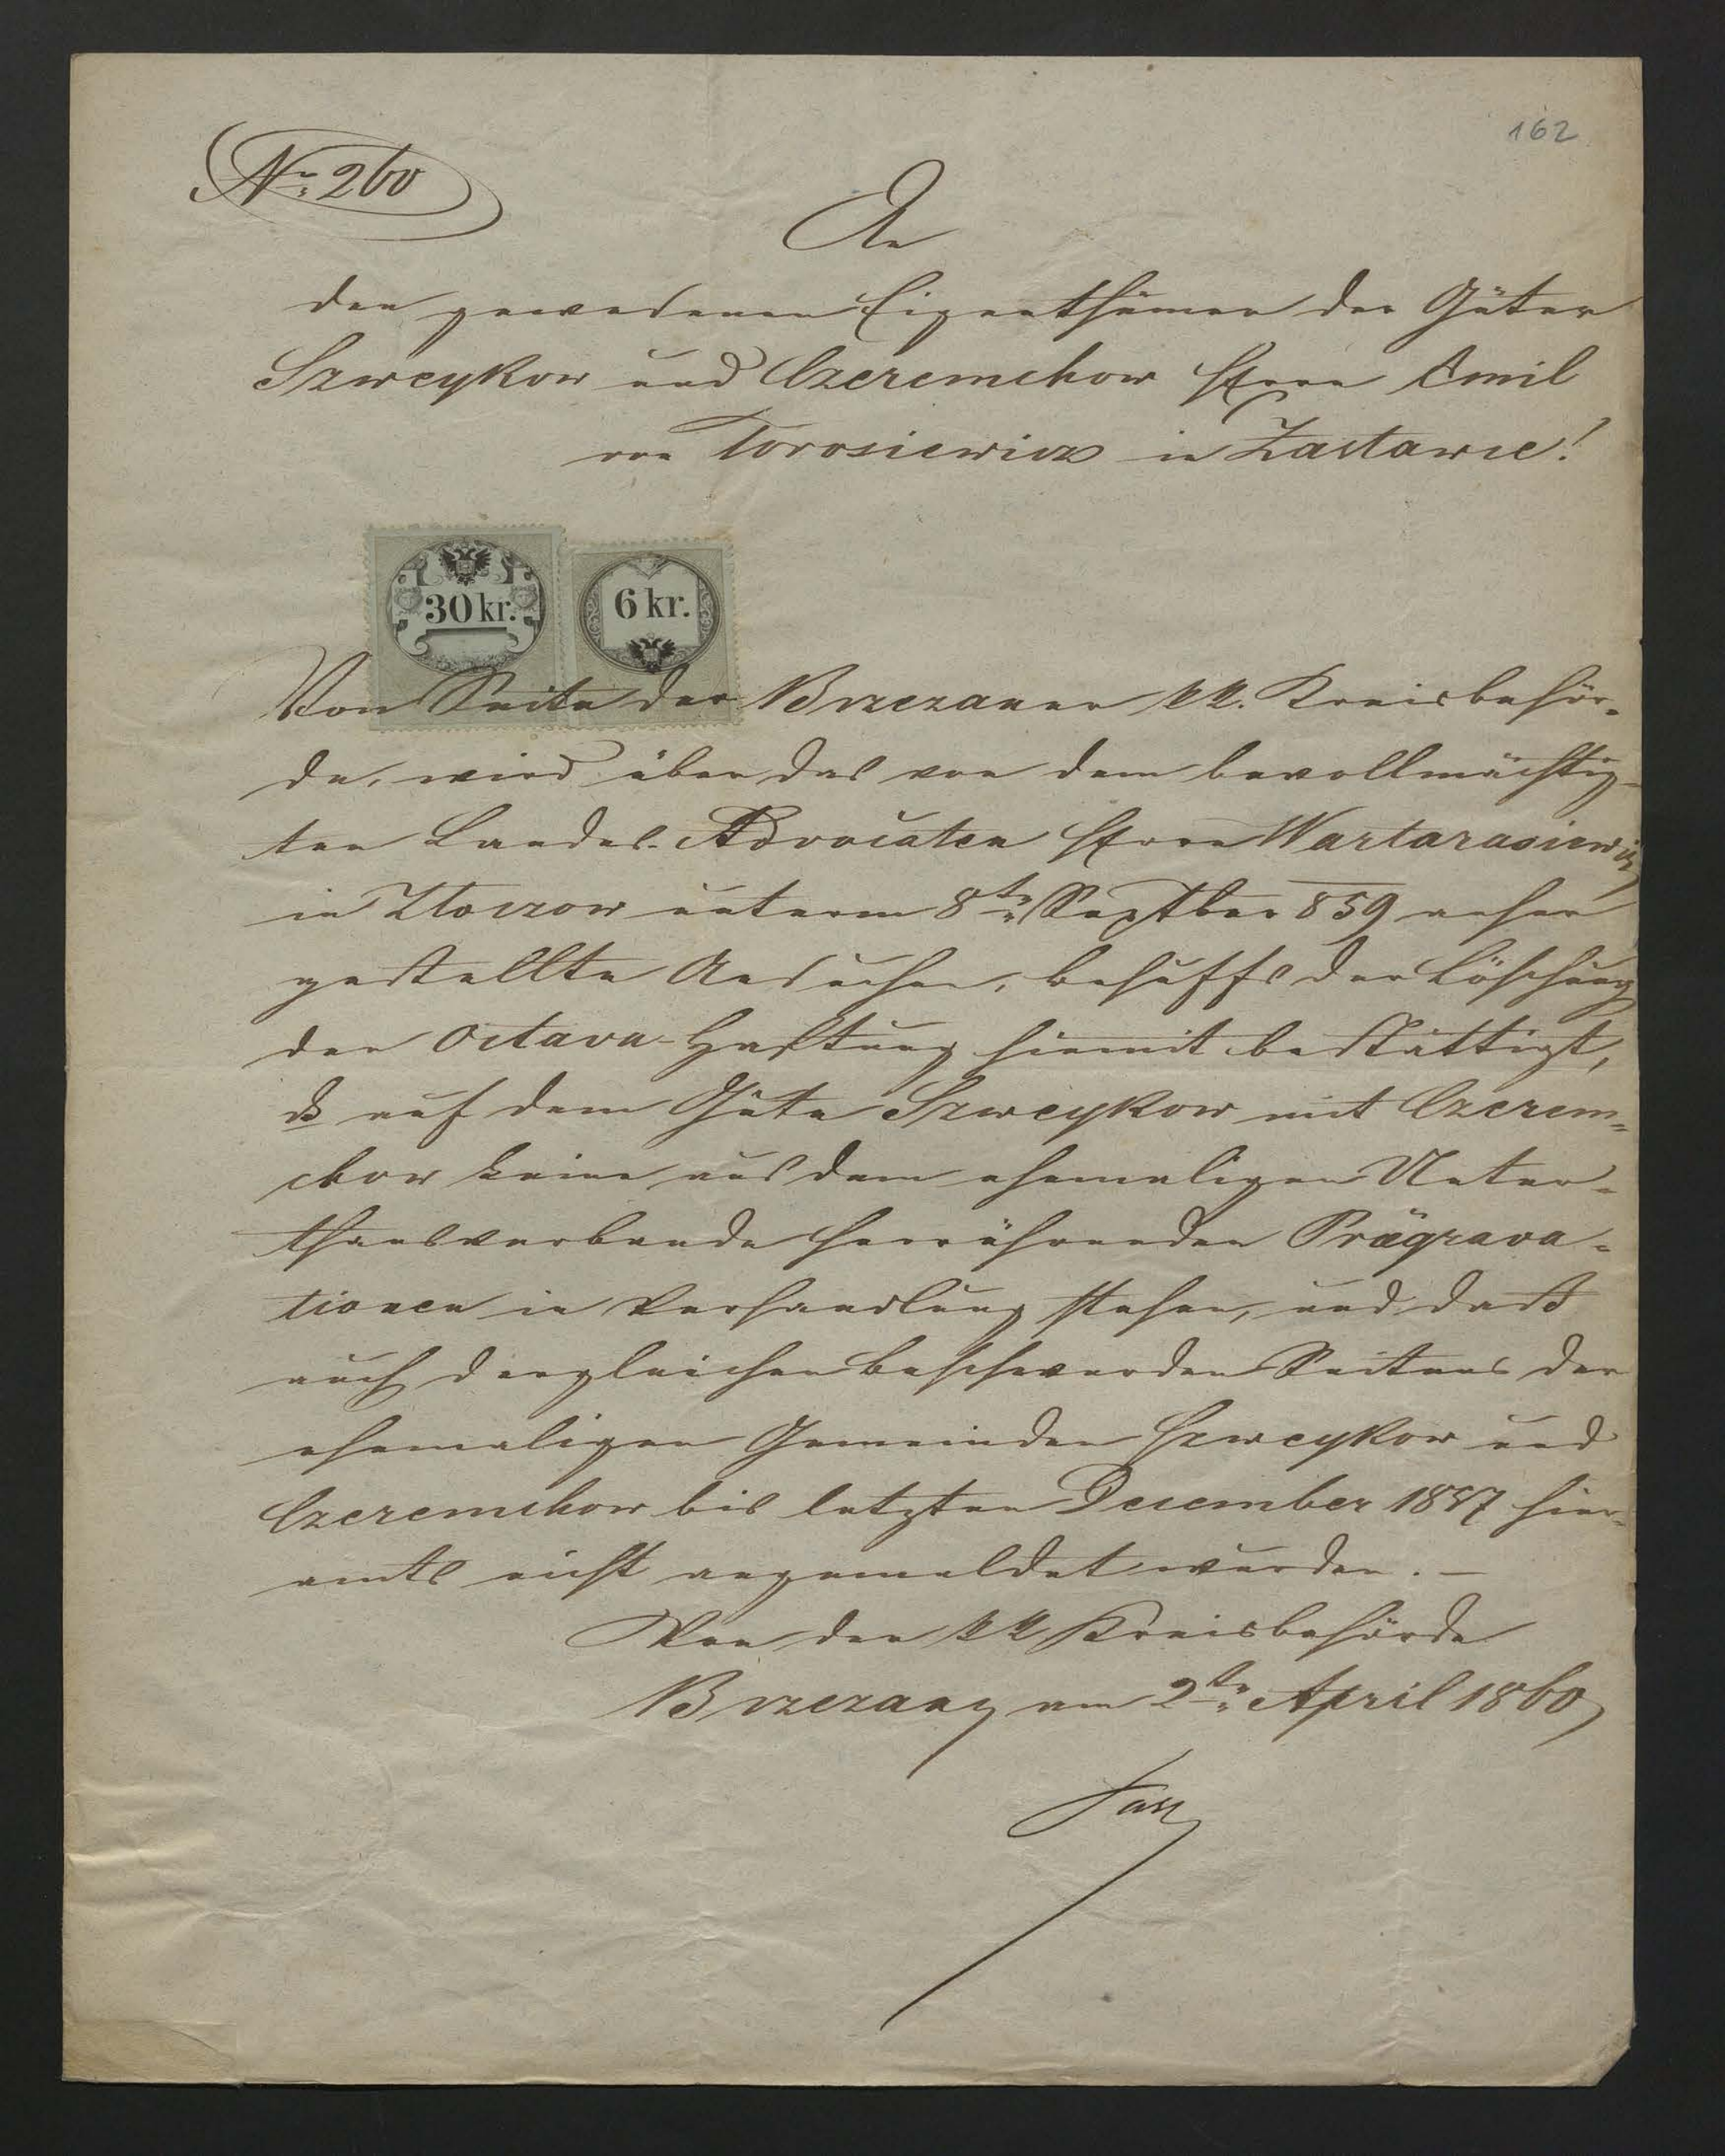 162
Nr: 260
An
den gewesenen Eigenthümer der Güter
Szweykow und Czeremchow Herrn Emil
von Torosiewicz in Zastawie!
30 kr. 6 kr.
Von Seite der Brzezaner kk. Kreisbehör-
de, wird über das von dem bevollmächtig-
ten Landes-Advocaten Herrn Wartarasiewicz
in Złoczow unterm 8ten Septber 859 anher
gestellte Ansuchen, behufs der Löschung
der Octava-Haftung hiemit bestättigt,
dß auf dem Gute Szweykow mit Czerem-
chow keine aus dem ehemaligen Unter-
thansverbande herrührenden Prägrava-
tionen in Verhandlung stehen, und daß
auch dergleichen Beschwerden Seitens der
ehemaligen Gemeinden Szweykow und
Czeremchow bis letzten December 1857 hier-
amts nicht angemeldet wurden. –
Von der kk Kreisbehörde
Brzezany am 2ten April 1860